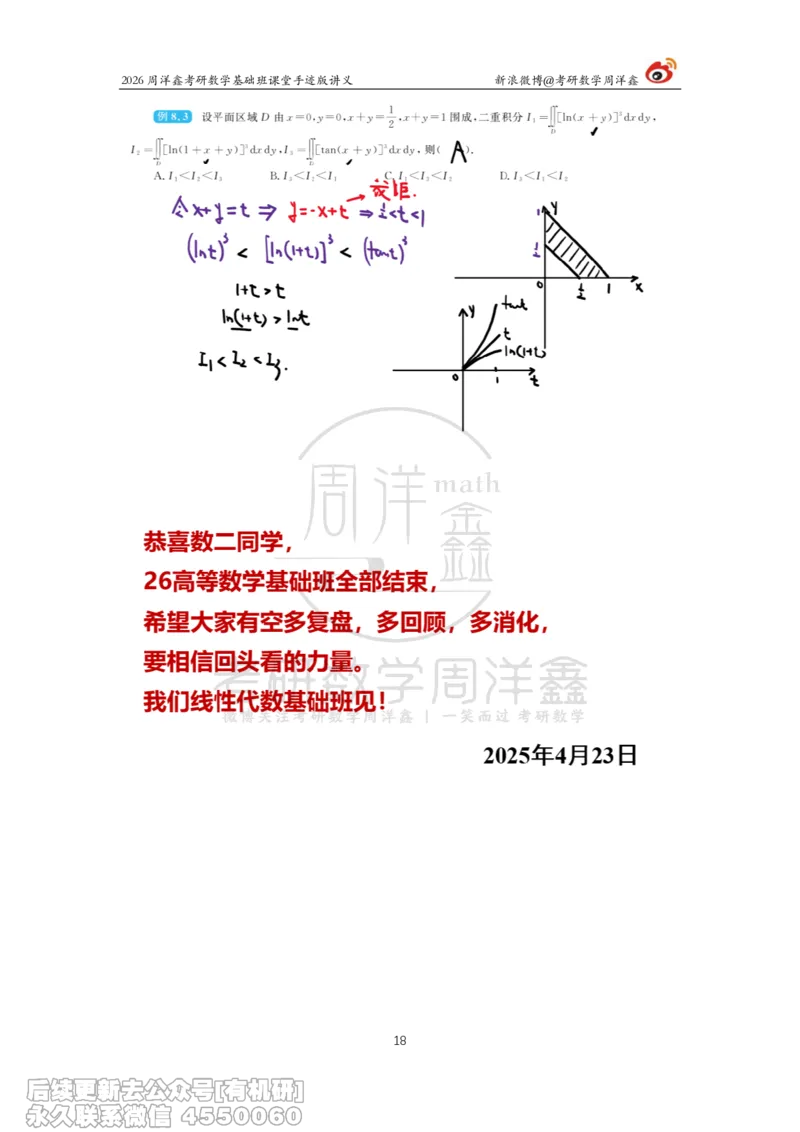 2026周洋鑫考研数学基础班课堂手迹版讲义 新浪微博@考研数学周洋鑫
例 8.3 设平面区域 D 由 x=0,y=0,x+y=1/2,x+y=1 围成,二重积分 I₁=∬_D[ln(x+y)]³dxdy,
I₂=∬_D[ln(1+x+y)]³dxdy,I₃=∬_D[tan(x+y)]³dxdy,则( A ).
A. I₁<I₂<I₃ B. I₃<I₂<I₁ C. I₁<I₃<I₂ D. I₃<I₁<I₂
令x+y=t ⇒ y=-x+t → 截距. ⇒ 1/2<t<1
(lnt)³ < [ln(1+t)]³ < (tant)³
1+t>t
ln(1+t)>lnt
I₁<I₂<I₃.
y
1
1/2
0 1/2 1 x
y
tant
t
ln(1+t)
0 1 t
周洋math
鑫
恭喜数二同学，
26高等数学基础班全部结束，
希望大家有空多复盘，多回顾，多消化，
要相信回头看的力量。
考研数学周洋鑫
我们线性代数基础班见！
微博关注考研数学周洋鑫 | 一笑而过 考研数学
2025年4月23日
18
后续更新去公众号[有机研]
永久联系微信 4550060